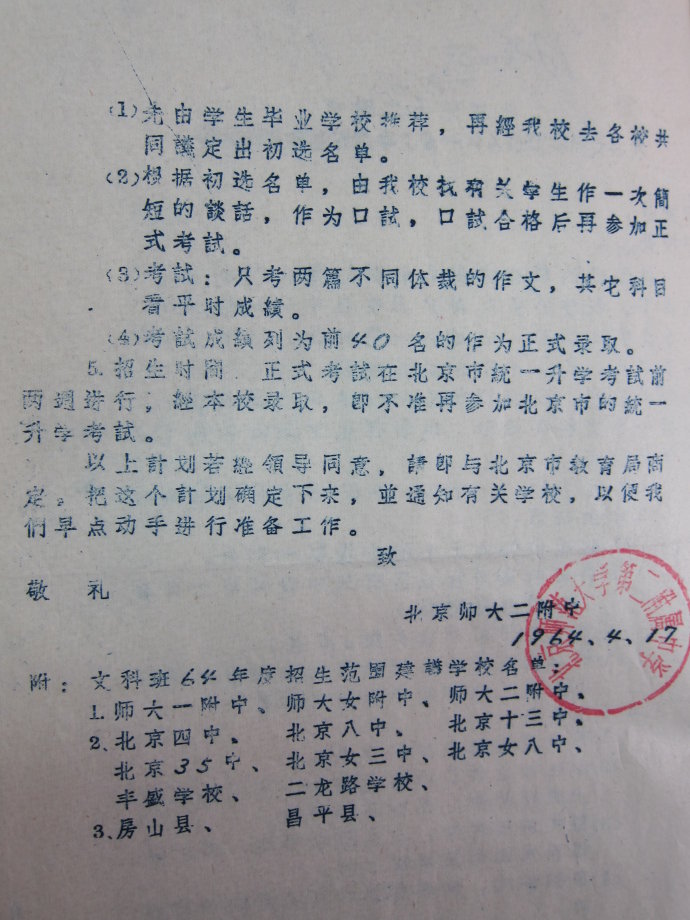 (1)先由学生毕业学校推荐，再經我校去各校共
同議定出初选名单。
(2)根据初选名单，由我校找有关学生作一次簡
短的談話，作为口試，口試合格后再参加正
式考試。
(3)考試：只考两篇不同体裁的作文，其它科目
看平时成績。
(4)考試成績列为前40名的作为正式录取。
5.招生时間 正式考試在北京市統一升学考試前
两週进行，經本校录取，卽不准再参加北京市的統一
升学考試。
以上計划若經領导同意，請卽与北京市教育局商
定。把这个計划确定下来，並通知有关学校，以便我
們早点动手进行准备工作。
致
敬礼
北京师大二附中
1964.4.17
北京师范大学第二附属中学
附：文科班64年度招生范圍建議学校名单：
1.师大一附中、师大女附中、师大二附中、
2、北京四中、北京八中、北京十三中、
北京35中、北京女三中、北京女八中、
丰盛学校、二龙路学校、
3、房山县、昌平县、